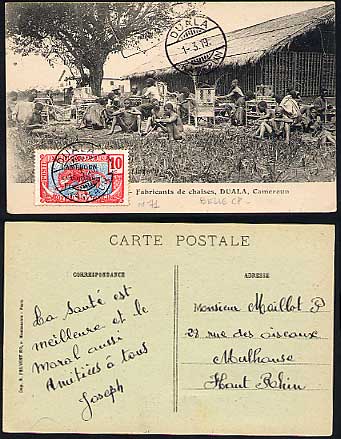 DUALA
1-3.19
10
CAMEROUN
Fabricants de chaises, DUALA, Cameroun
n°71
BELLE CP
CARTE POSTALE
CORRESPONDANCE
ADRESSE
La Santé est
meilleure et le
Moral aussi
Amitiées à tous
Joseph
Monsieur Maillot P
28 rue des oiseaux
Mulhouse
Haut Rhin